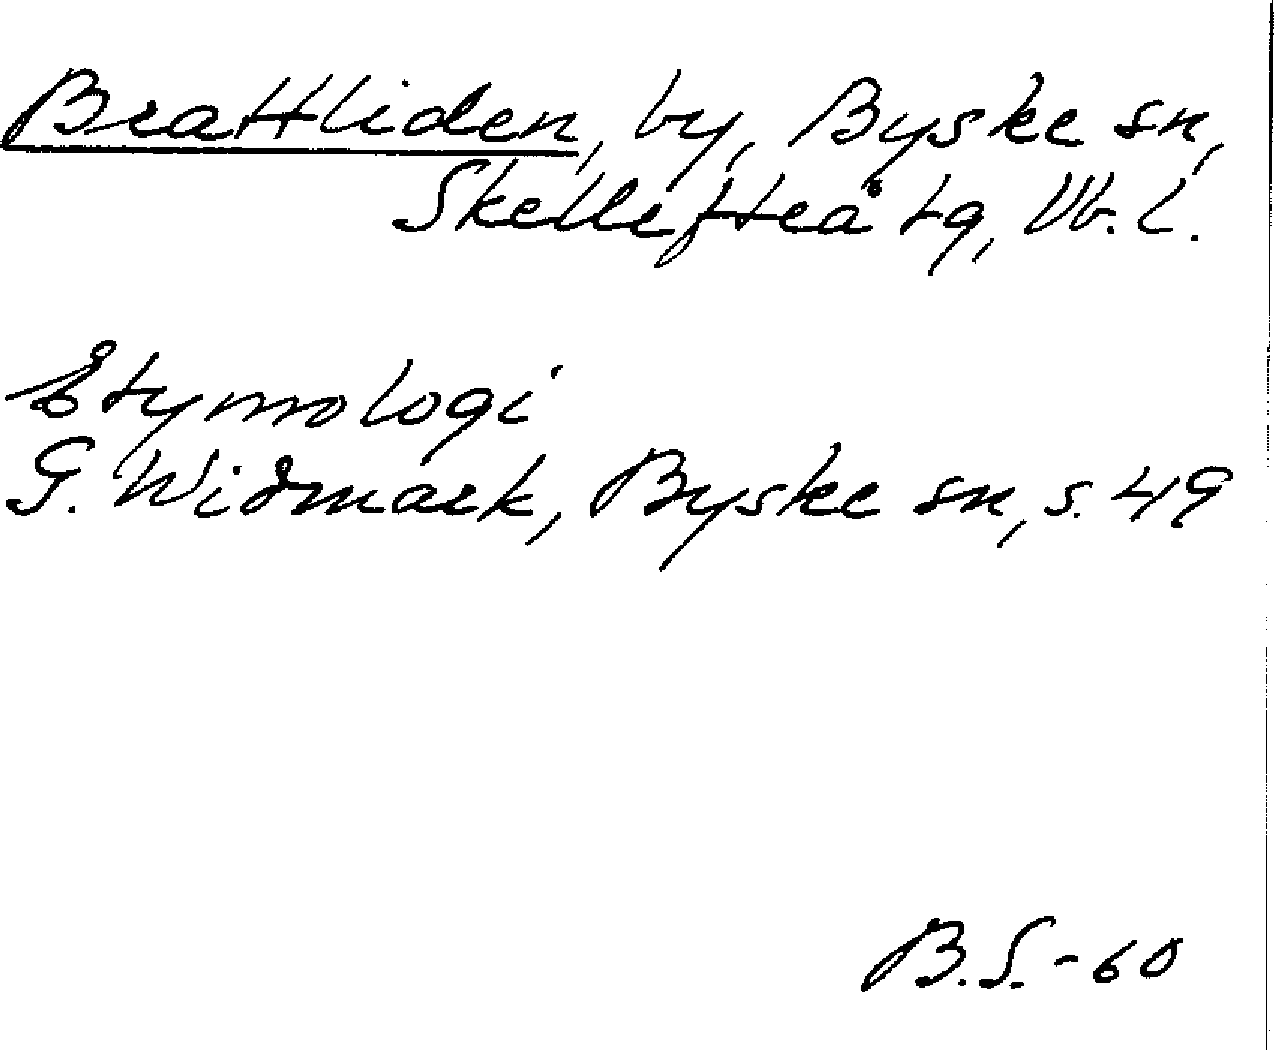 Brattliden, by, Byske sn,
Skellefteå tg, Vb. l.
Etymologi
G. Widmark, Byske sn, s. 49
B.S.-60